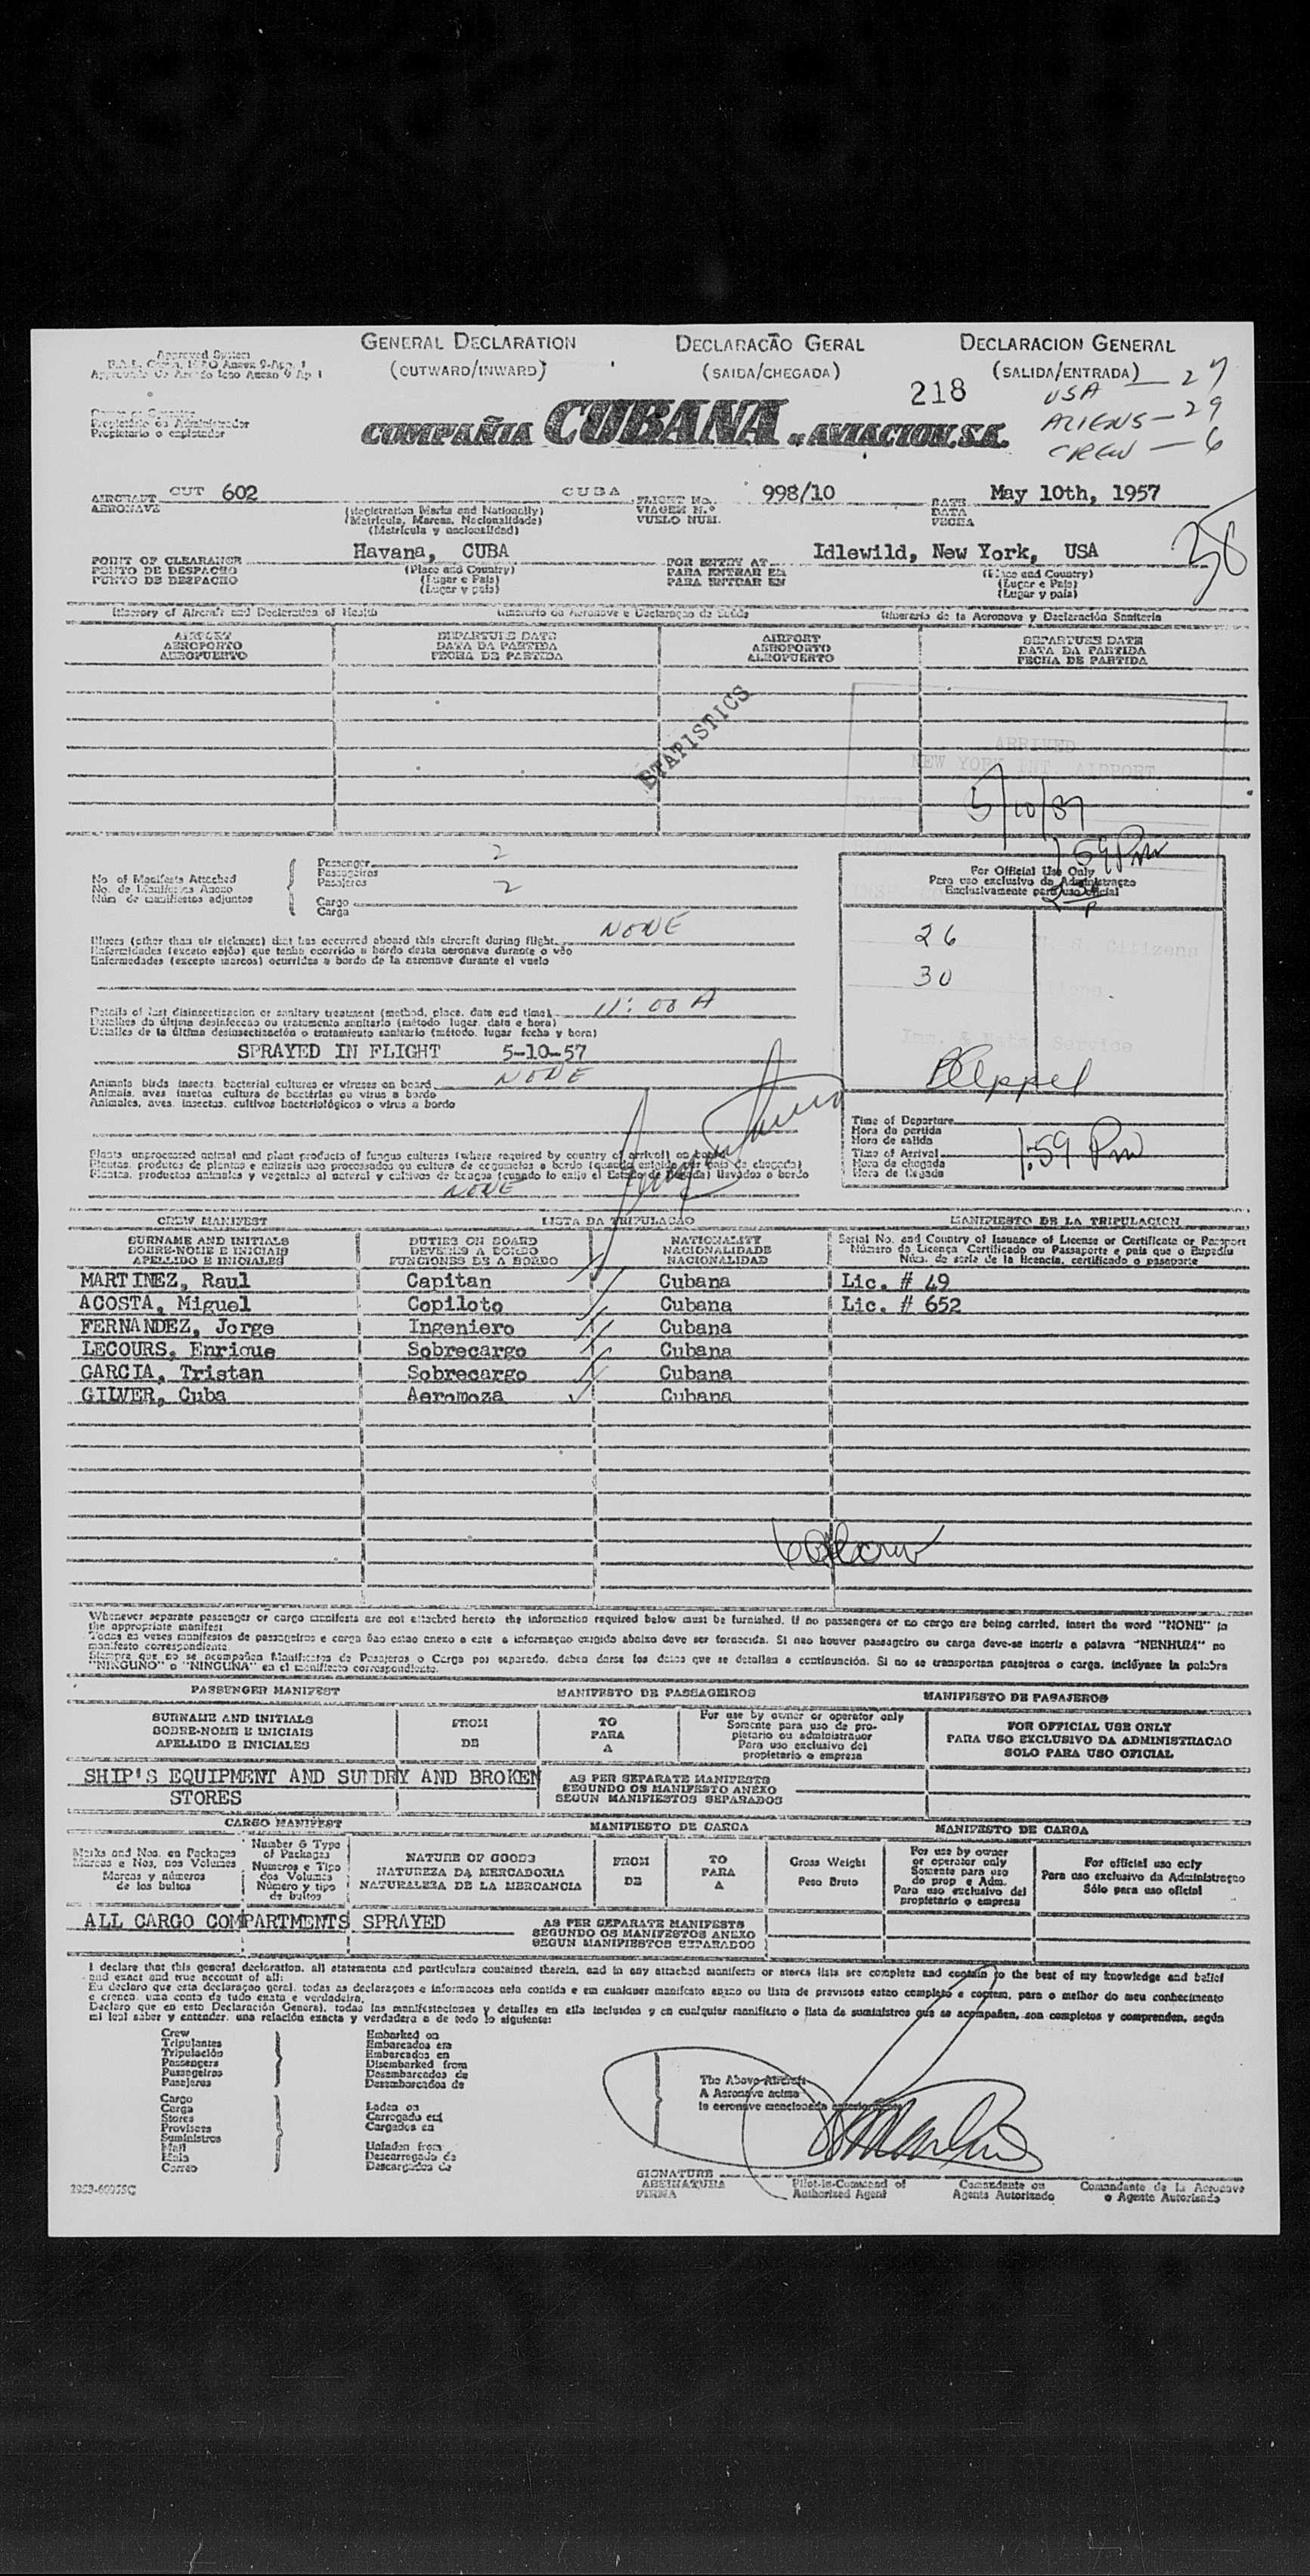 GENERAL DECLARATION
(OUTWARD/INWARD)
DECLARACÃO GERAL
(SAIDA/CHEGADA)
DECLARACION GENERAL
(SALIDA/ENTRADA)
Approved System
218
USA — 27
ALIENS — 29
CREW — 6
Propietário ou Administrador
Propietario o explotador
COMPAÑIA CUBANA DE AVIACION, S.A.
AIRCRAFT CUT 602 CUBA FLIGHT No. 998/10 DATE May 10th, 1957
AERONAVE (Registration Marks and Nationally) VIAGEM N.º DATA
(Matricula, Marcas, Nacionalidade) VUELO NUM. FECHA
(Matricula y nacionalidad)
POINT OF CLEARANCE Havana, CUBA FOR ENTRY AT Idlewild, New York, USA
PONTO DE DESPACHO (Place and Country) PARA ENTRAR EM (Place and Country)
PUNTO DE DESPACHO (Lugar e Pais) PARA ENTRAR EN (Lugar e Pais)
(Lugar y pais) (Lugar y pais)
Itinerary of Aircraft and Declaration of Health Itinerario da Aeronave e Declaraçao de Saúde Itinerario de la Aeronave y Declaración Sanitaria
AIRPORT DEPARTURE DATE AIRPORT DEPARTURE DATE
AEROPORTO DATA DA PARTIDA AEROPORTO DATA DA PARTIDA
AEROPUERTO FECHA DE PARTIDA AEROPUERTO FECHA DE PARTIDA
STATISTICS
ARRIVED
NEW YORK INT. AIRPORT
DATE 5/10/57
1 59 PM
No. of Manifests Attached
No. de Manifestos Anexo
Núm. de manifiestos adjuntos
Passenger 2
Passageiros
Pasajeros
Cargo 2
Carga
For Official Use Only
Para uso exclusivo da Administraçao
Exclusivamente para uso oficial
26 U. S. Citizens
30 Aliens
Imm. & Natz. Service
Illness (other than air sickness) that has occurred aboard this aircraft during flight NONE
Enfermidades (exceto enjôo) que tenha ocorrido a bordo desta aeronave durante o vôo
Enfermedades (excepto mareos) ocurridas a bordo de la aeronave durante el vuelo
Details of last disinsectization or sanitary treatment (method, place, date and time) 11:00 A
Detalhes da última desinfeccao ou tratamento sanitario (método lugar, data e hora)
Detalles de la última desinsectización o tratamiento sanitario (método, lugar fecha y hora)
SPRAYED IN FLIGHT 5-10-57
Animals birds insects bacterial cultures or viruses on board NONE
Animais, aves insetos cultura de bactérias ou virus a bordo
Animales, aves, insectos, cultivos bacteriológicos o virus a bordo
Time of Departure
Hora da partida
Hora de salida
Time of Arrival 1:59 PM
Hora de chegada
Hora de llegada
Plants unprocessed animal and plant products of fungus cultures (where required by country of arrival) on board
Plantas, productos animales y vegetales al natural y cultivos de hongos (cuando lo exija el Estado de llegada) llevados a bordo
NONE
CREW MANIFEST LISTA DA TRIPULACAO MANIFIESTO DE LA TRIPULACION
SURNAME AND INITIALS DUTIES ON BOARD NATIONALITY Serial No. and Country of Issuance of License or Certificate or Passport
SOBRE-NOME E INICIAIS DEVERES A BORDO NACIONALIDADE Número da Licença Certificado ou Passaporte e pais que o Expediu
APELLIDO E INICIALES FUNCIONES DE A BORDO NACIONALIDAD Núm. de serie de la licencia, certificado o pasaporte
MARTINEZ, Raul Capitan Cubana Lic. # 49
ACOSTA, Miguel Copiloto Cubana Lic. # 652
FERNANDEZ, Jorge Ingeniero Cubana
LECOURS, Enrique Sobrecargo Cubana
GARCIA, Tristan Sobrecargo Cubana
GILVER, Cuba Aeromoza Cubana
Whenever separate passenger or cargo manifests are not attached hereto the information required below must be furnished. If no passengers or no cargo are being carried, insert the word "NONE" in
the appropriate manifest
Todas as vezes manifestos de passageiros e carga nao estao anexo a este a informaçao exigida abaixo deve ser fornecida. Si nao houver passageiro ou carga deve-se inserir a palavra "NENHUM" no
manifesto correspondiente
Siempre que no se acompañen Manifiestos de Pasajeros o Carga por separado, deben darse los datos que se detallan a continuación. Si no se transportan pasajeros o carga, inclúyase la palabra
"NINGUNO" o "NINGUNA" en el manifiesto correspondiente.
PASSENGER MANIFEST MANIFESTO DE PASSAGEIROS MANIFIESTO DE PASAJEROS
SURNAME AND INITIALS FROM TO For use by owner or operator only FOR OFFICIAL USE ONLY
SOBRE-NOME E INICIAIS DE PARA Somente para uso de pro- PARA USO EXCLUSIVO DA ADMINISTRACAO
APELLIDO E INICIALES A pietario ou administrador SOLO PARA USO OFICIAL
Para uso exclusivo del
propietario o empresa
SHIP'S EQUIPMENT AND SUNDRY AND BROKEN AS PER SEPARATE MANIFESTS
STORES SEGUNDO OS MANIFESTO ANEXO
SEGUN MANIFIESTOS SEPARADOS
CARGO MANIFEST MANIFIESTO DE CARGA MANIFIESTO DE CARGA
Marks and Nos. on Packages Number & Type of Packages NATURE OF GOODS FROM TO Gross Weight For use by owner or operator only For official use only
Marcas e Nos. nos Volumes Numeros e Tipo dos Volumes NATUREZA DA MERCADORIA DE PARA Peso Bruto Somente para uso do prop e Adm. Para uso exclusivo da Administraçao
Marcas y números de los bultos Número y tipo de bultos NATURALEZA DE LA MERCANCIA A Para uso exclusivo del propietario o empresa Sólo para uso oficial
ALL CARGO COMPARTMENTS SPRAYED AS PER SEPARATE MANIFESTS
SEGUNDO OS MANIFESTOS ANEXO
SEGUN MANIFIESTOS SEPARADOS
I declare that this general declaration, all statements and particulars contained therein, and in any attached manifests or stores lists are complete and contain to the best of my knowledge and belief
and exact and true account of all:
Eu declaro que esta declaraçao geral, todas as declaraçoes e informacoes nela contida e em cualquer manifesto anexo ou lista de previsoes estao completo e contem, para o melhor do meu conhecimento
e crenca, uma conta de tudo exata e verdadeira.
Declaro que en esta Declaración General, todas las manifestaciones y detalles en ella incluidos y en cualquier manifiesto o lista de suministros que se acompañen, son completos y comprenden, según
mi leal saber y entender, una relación exacta y verdadera a de todo lo siguiente:
Crew Embarked on
Tripulantes Embarcados em
Tripulación Embarcados en
Passengers Disembarked from
Passageiros Desembarcados de
Pasajeros Desembarcados de
Cargo
Carga Laden on
Stores Carregado em
Provisoes Cargados en
Suministros
Mail Unladen from
Mala Descarregado de
Correo Descargados de
The Above Aircraft
A Aeronave acima
la aeronave mencionada anteriormente
SIGNATURE Pilot-in-Command of Comandante ou Comandante de la Aeronave
ASSINATURA Authorized Agent Agente Autorizado o Agente Autorizado
FIRMA